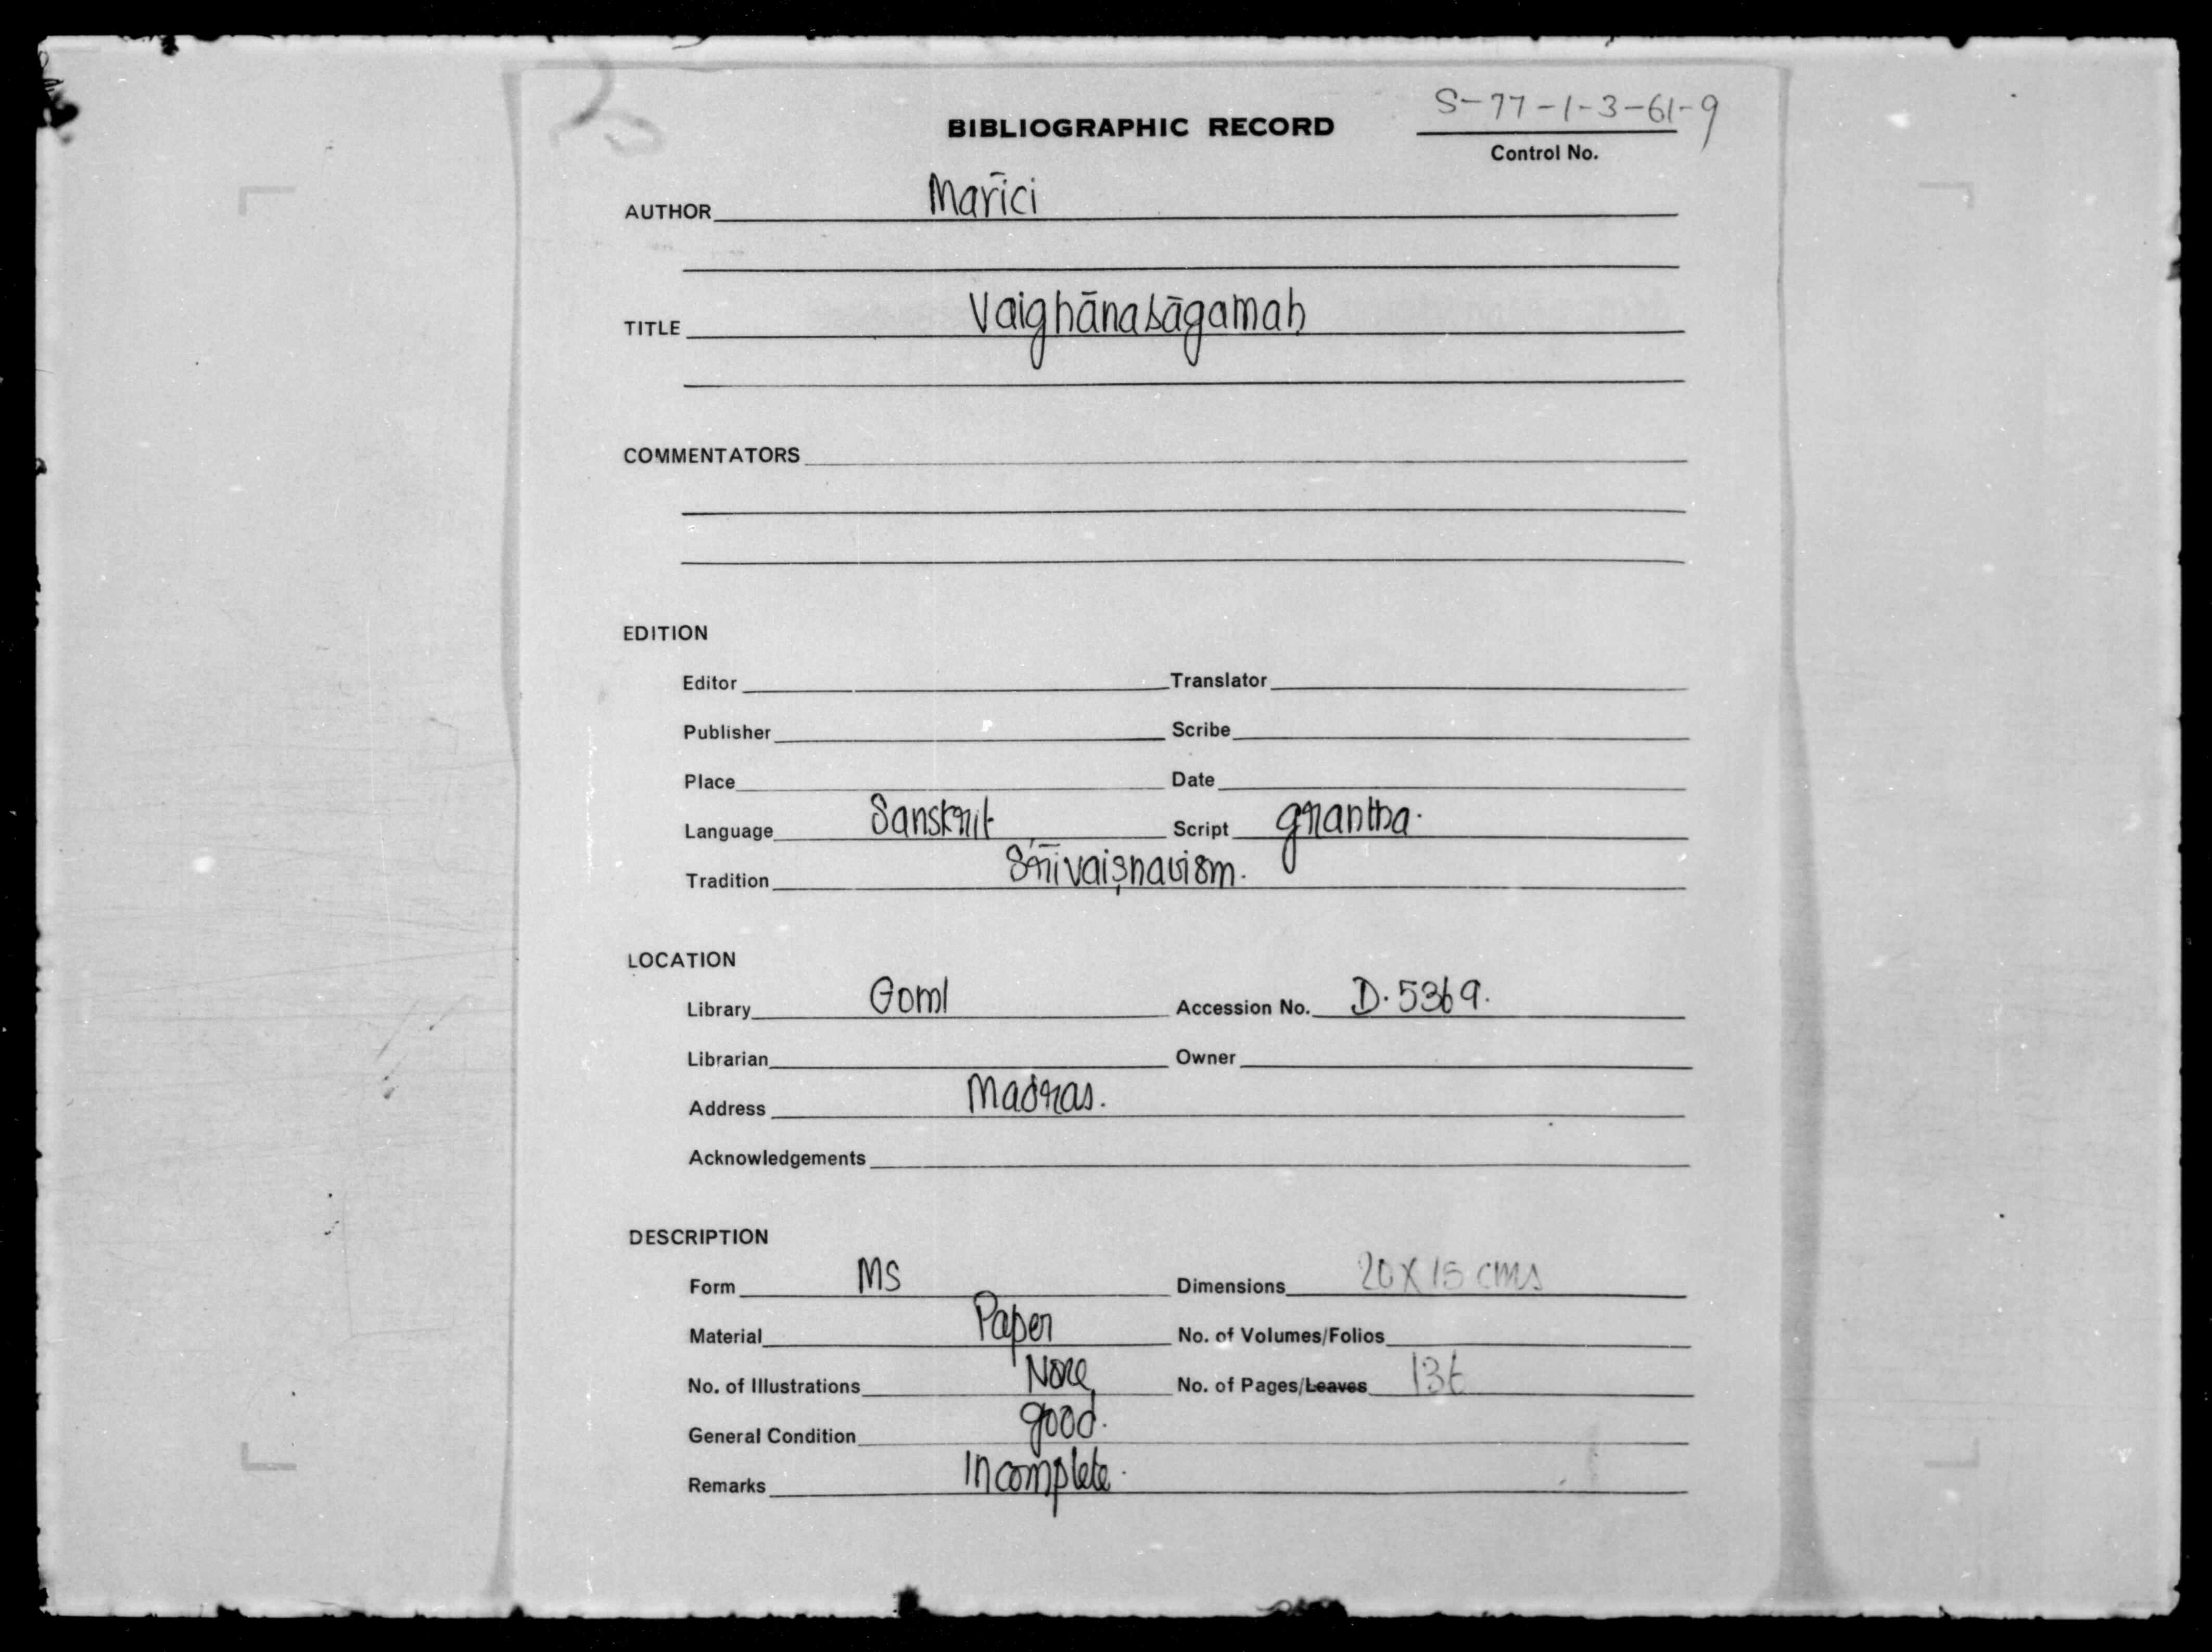 S-77-1-3-61-9
BIBLIOGRAPHIC RECORD
Control No.
AUTHOR Marīci
TITLE Vaighānasāgamah
COMMENTATORS
EDITION
Editor Translator
Publisher Scribe
Place Date
Language Sanskrit Script grantha.
Tradition Śrīvaiṣnavism.
LOCATION
Library Goml Accession No. D.5369.
Librarian Owner
Address Madras.
Acknowledgements
DESCRIPTION
Form MS Dimensions 20X15 cms
Material Paper No. of Volumes/Folios
No. of Illustrations None No. of Pages/Leaves 136
General Condition good.
Remarks Incomplete.